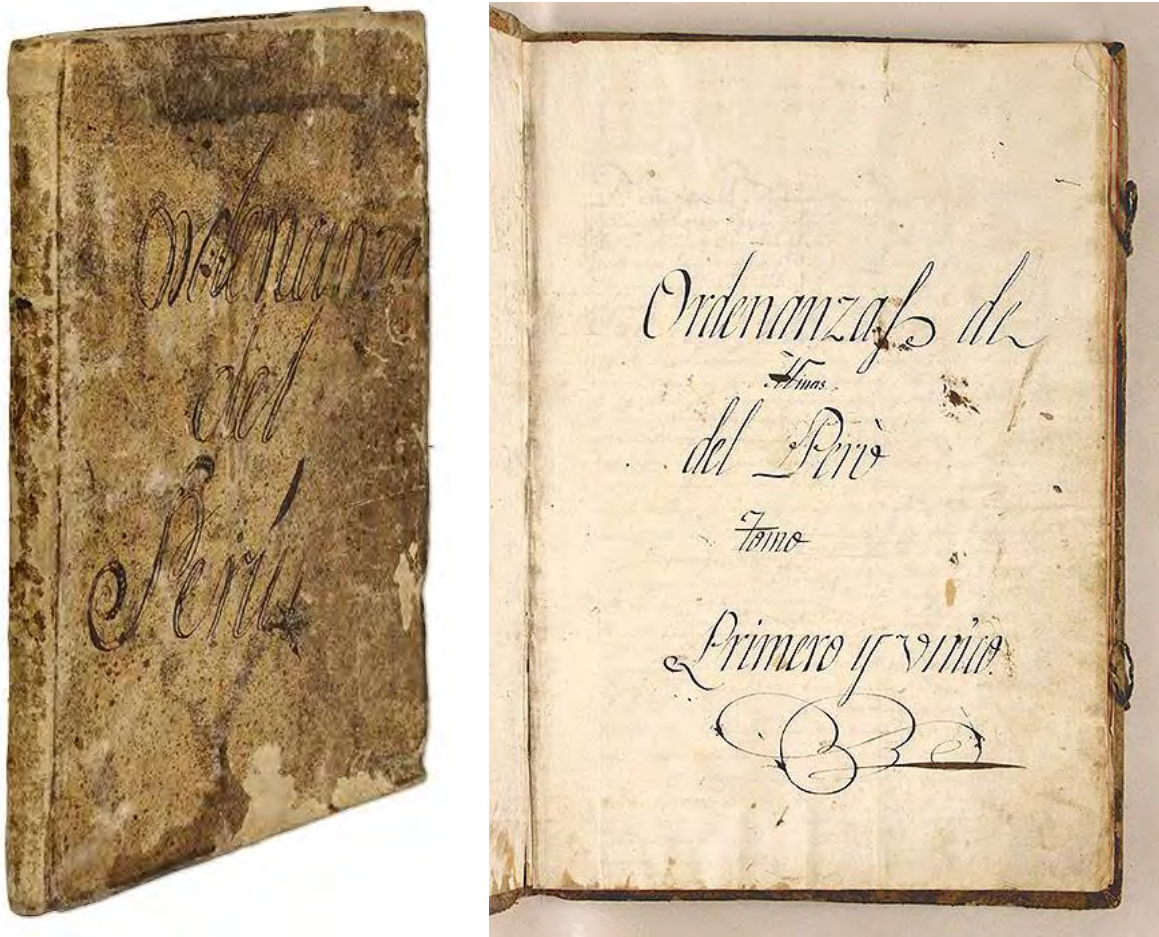 Ordenanza
del
Perú
Ordenanzas de
Minas.
del Perù
Tomo
Primero y vnico.